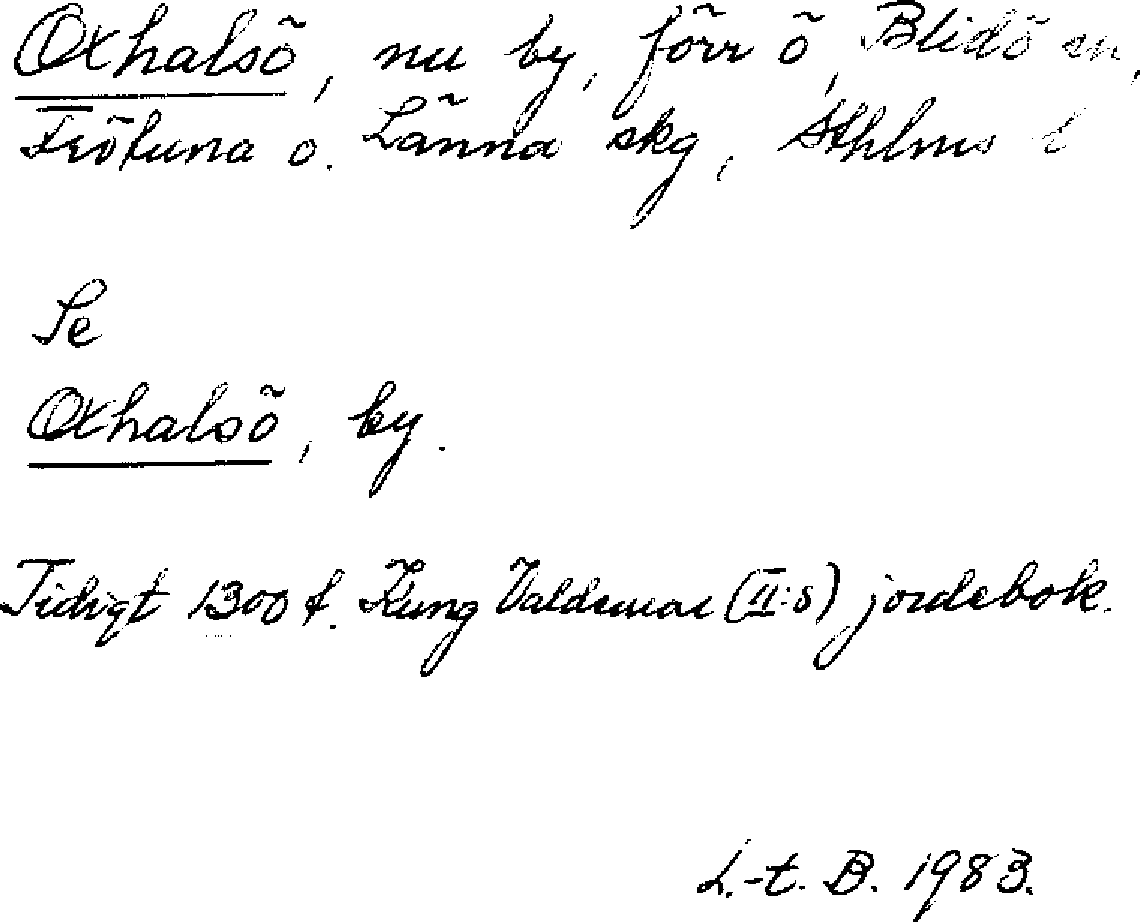 Oxhalsö, nu by, förr ö, Blidö sn,
Frötuna o. Länna skg, Sthlms l
Se
Oxhalsö, by.
Tidigt 1300 t. Kung Valdemar (II:s) jordebok.
L.-t. B. 1983.